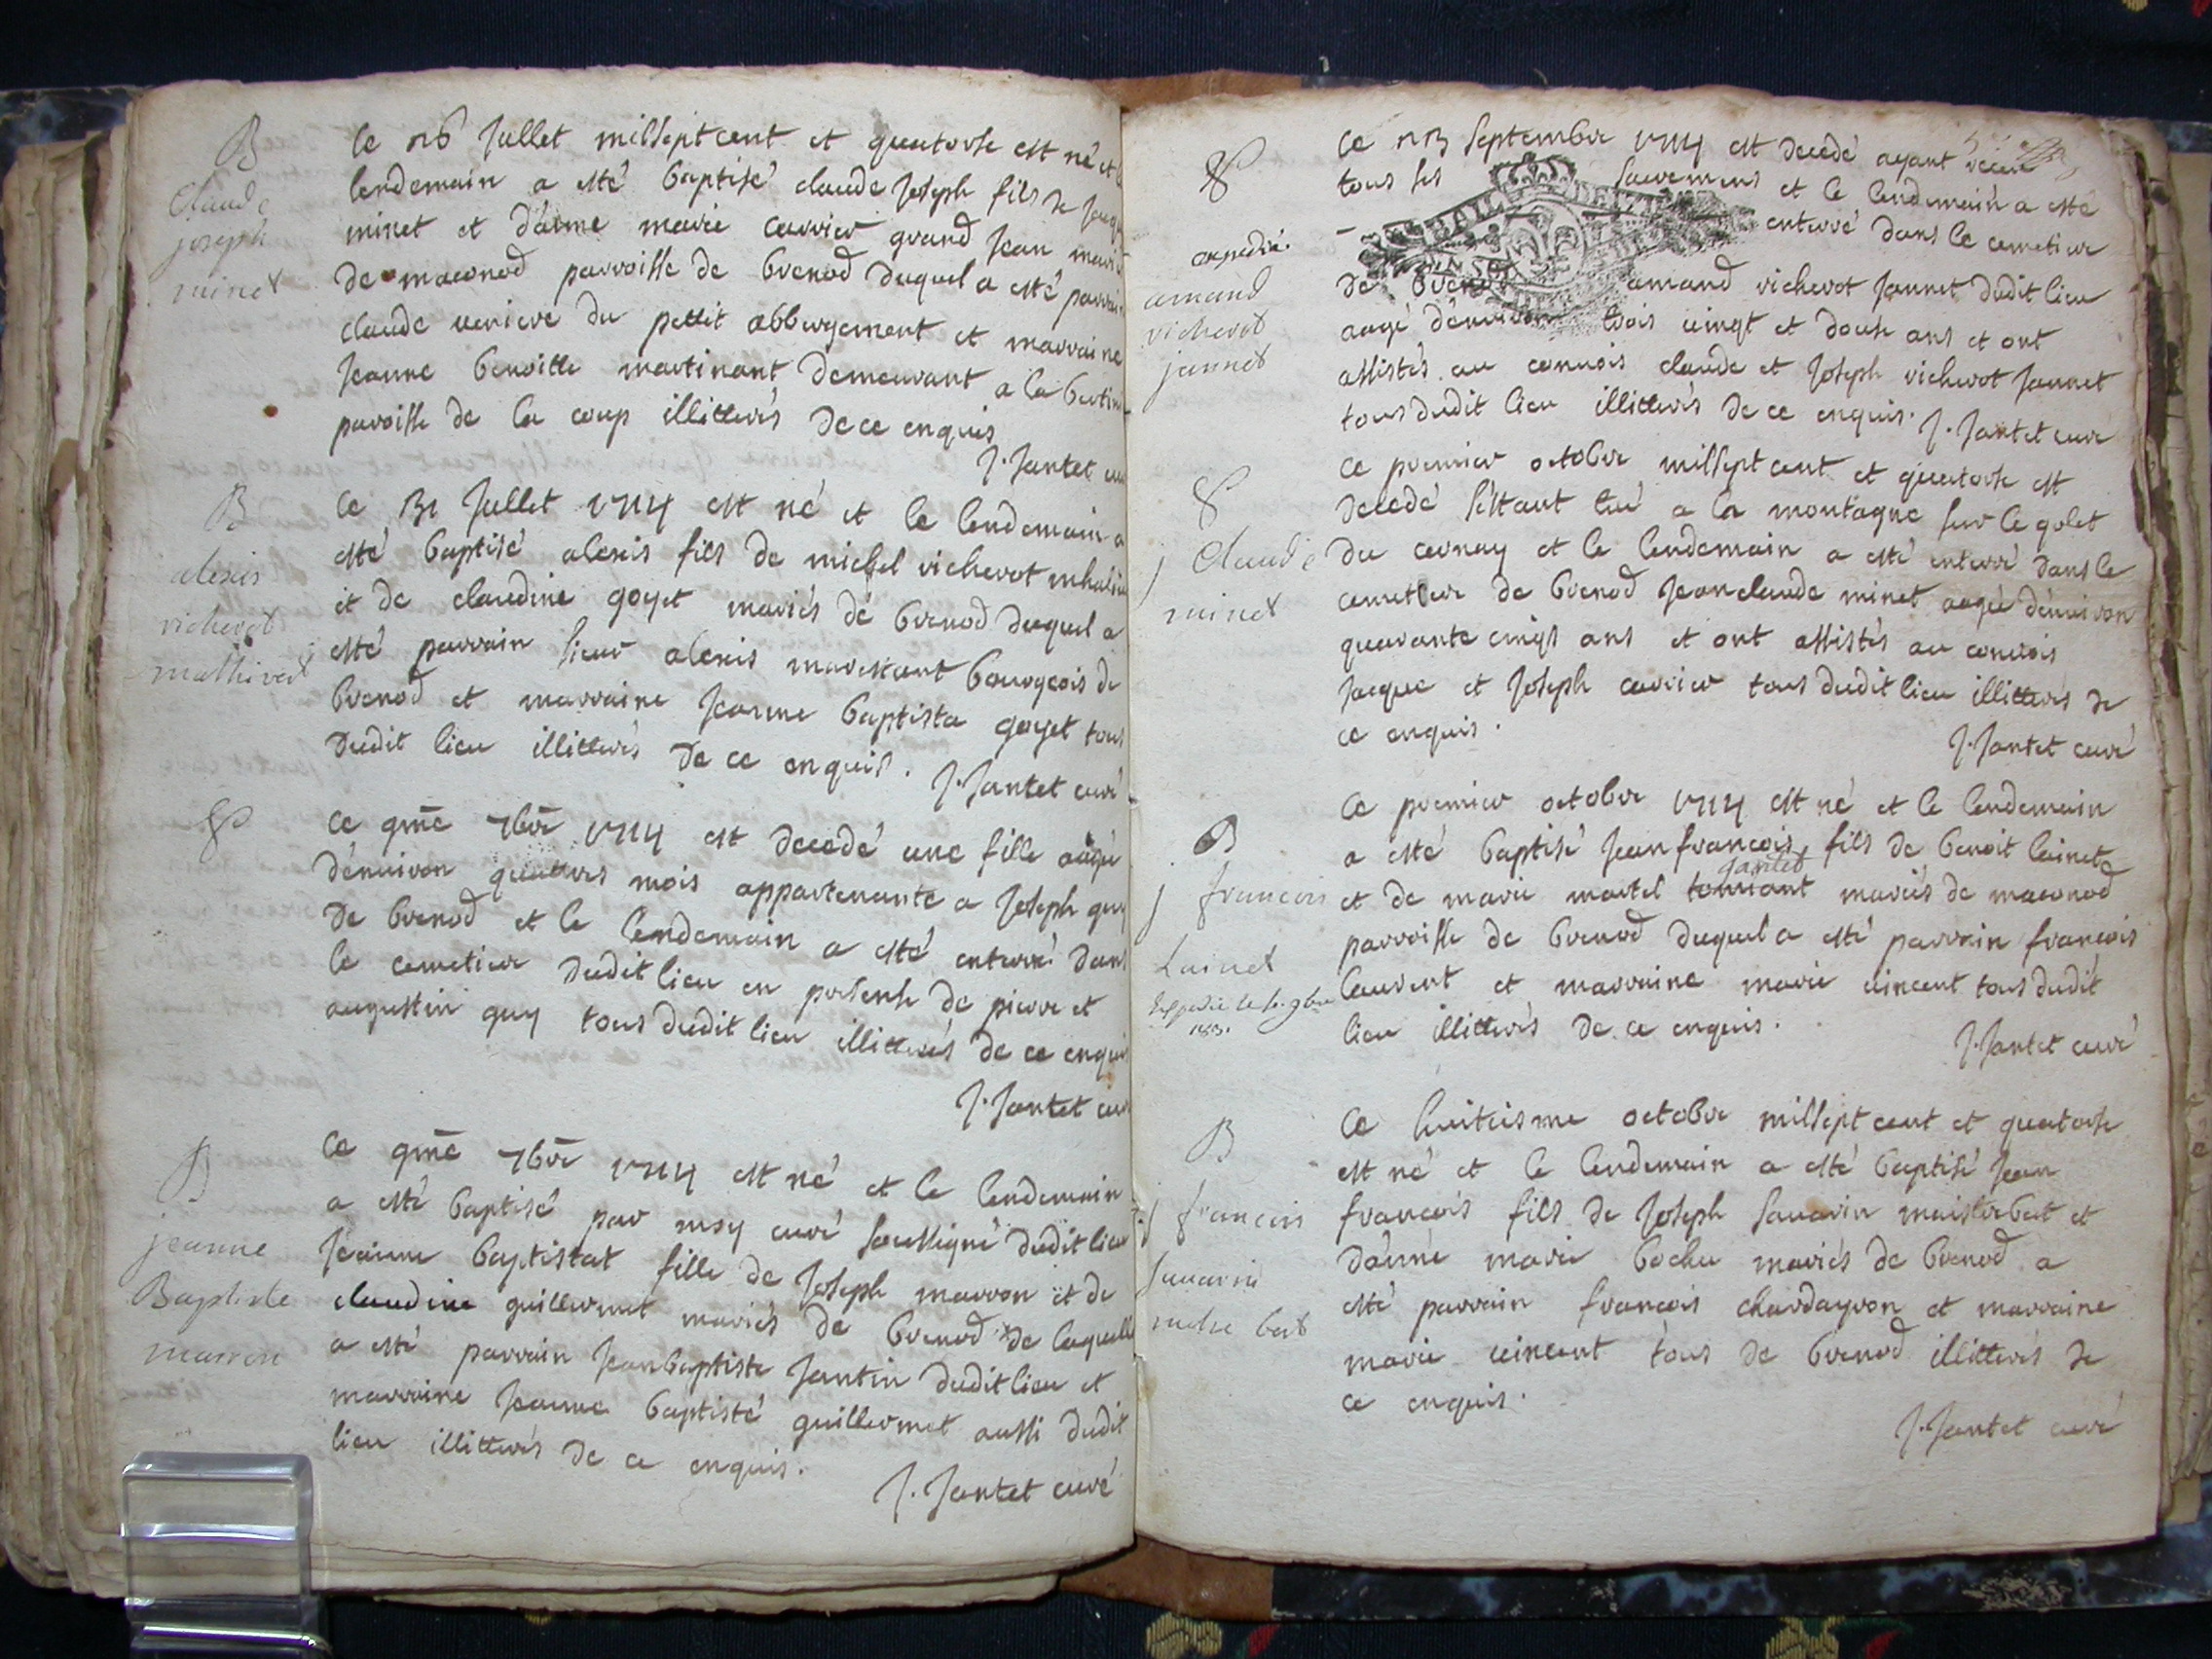 B
Claude
joseph
minet
le 26 Jullet millsept cent et quatorse est né et
lendemain a esté baptisé claude Joseph fils de
minet et d'anne marie carrier grand Jean
de maconod parroisse de brenod duquel a esté parrain
claude veriere du pettit abbergement et marraine
Jeanne benoitte martinant demeurant a la
paroisse de la coup illitterés de ce enquis
J. Jantet
B
alexis
vicherot
mathivet
le 31 Jullet 1714 est né et le lendemain a
esté baptisé alexis fils de michel vicherot
et de claudine goyet mariés de brenod duquel a
esté parrain sieur alexis marestant bourgeois de
brenod et marraine Jeanne baptista goyet tous
dudit lieu illitterés de ce enquis.
J. Jantet curé
le qme 7bre 1714 est decedé une fille aagé
d'enuiron quattres mois appartenante a Joseph guy
de brenod et le lendemain a esté enterré dans
le cemetiere dudit lieu en presense de pierre et
augustin guy tous dudit lieu illitterés de ce enquis
J. Jantet
B
jeanne
Baptiste
marron
le qme 7bre 1714 est né et le lendemain
a esté baptisé par moy curé soussigné dudit lieu
Jeanne baptistat fille de Joseph marron et de
claudine guillermet mariés de brenod de laquelle
a esté parrain Jeanbaptiste Jantin dudit lieu et
marraine Jeanne baptisté guillermet aussi dudit
lieu illitterés de ce enquis.
J. Jantet curé
expedié.
amand
vicherot
jannet
le 23 septembre 1714 est decedé ayant receu
tous ses sacremens et le lendemain a esté
enterré dans le cemetiere
de brenod amand vicherot Jannet dudit lieu
aagé d'enuiron trois uingt et douse ans et ont
assistés au conuois claude et Joseph vicherot Jannet
tous dudit lieu illitterés de ce enquis. J. Jantet curé
j Claude
minet
le premier octobre millsept cent et quatorse est
decedé s'éstant tué a la montagne sur le golet
du cernay et le lendemain a esté enterré dans le
cemetiere de brenod Jeanclaude minet aagé d'enuiron
quarante cinqs ans et ont assistés au conuois
Jacque et Joseph carrier tous dudit lieu illitterés de
ce enquis.
J. Jantet curé
B
j francois
Lainet
expedié le
le premier octobre 1714 est né et le lendemain
a esté baptisé Jean francois fils de benoit
jantet
et de marie martel mariés de maconod
parroisse de brenod duquel a esté parrain francois
laurent et marraine marie uincent tous dudit
lieu illitterés de ce enquis.
J. Jantet curé
B
j francois
sauarin
metre bat
le huitiesme octobre millsept cent et quatorse
est né et le lendemain a esté baptisé Jean
francois fils de Joseph sauarin maistrebat et
d'anne marie bochu mariés de brenod a
esté parrain francois chardayron et marraine
marie uincent tous de brenod illitterés de
ce enquis.
J. Jantet curé